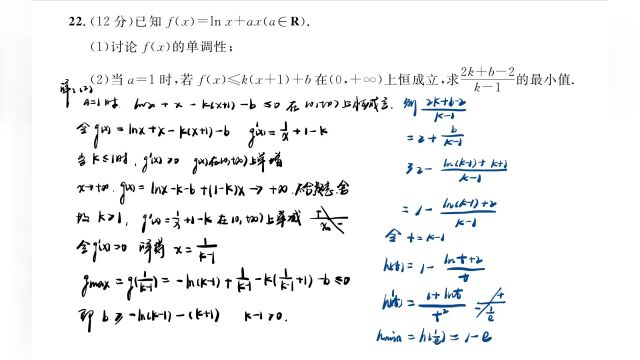 22. (12 分)已知 f(x)=ln x+ax(a∈R).
(1)讨论 f(x)的单调性;
(2)当 a=1 时,若 f(x)≤k(x+1)+b 在(0,+∞)上恒成立,求(2k+b-2)/(k-1)的最小值.
解:(2)
a=1时 lnx+x-k(x+1)-b≤0 在(0,+∞)上恒成立.
令g(x)=lnx+x-k(x+1)-b g'(x)=1/x+1-k
当k≤1时, g'(x)>0 g(x)在(0,+∞)上单增
x→+∞. g(x)=lnx-k-b+(1-k)x→+∞. 不合题意 舍
故 k>1, g'(x)=1/x+1-k 在(0,+∞)上单减
令g'(x)=0 解得 x=1/(k-1)
gmax=g(1/(k-1))=-ln(k-1)+1/(k-1)-k(1/(k-1)+1)-b≤0
即 b≥-ln(k-1)-(k+1) k-1>0.
则 (2k+b-2)/(k-1)
=2+b/(k-1)
≥2-(ln(k-1)+k+1)/(k-1)
=1-(ln(k-1)+2)/(k-1)
令 t=k-1
h(t)=1-(lnt+2)/t
h'(t)=(1+lnt)/t²
hmin=h(1/e)=1-e